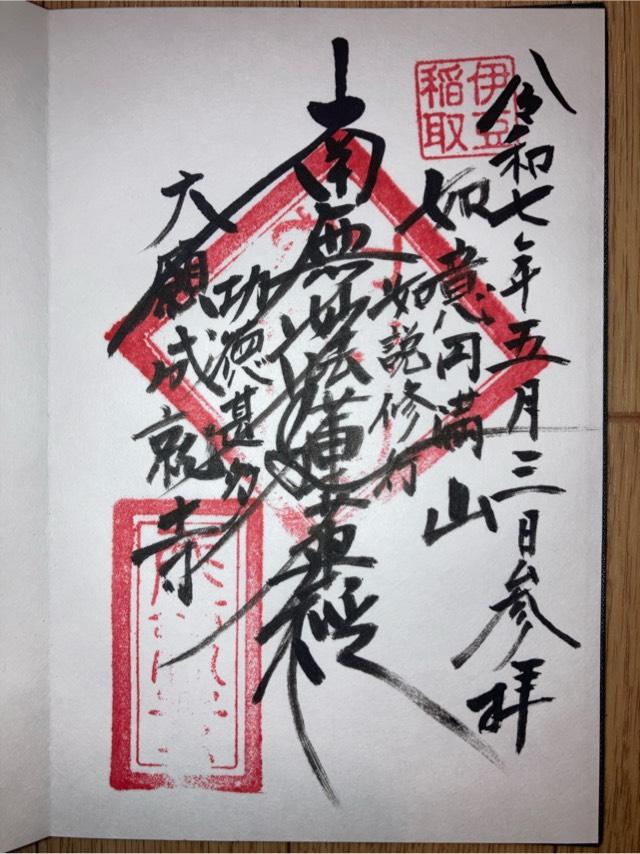 伊豆
稲取
令和七年五月三日参拝
如意円満山
如説修行
南無妙法蓮華経
功徳甚多
大願成就寺